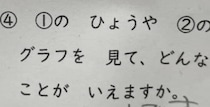 ④ ①の ひょうや ②の
グラフを 見て、どんな
ことが いえますか。